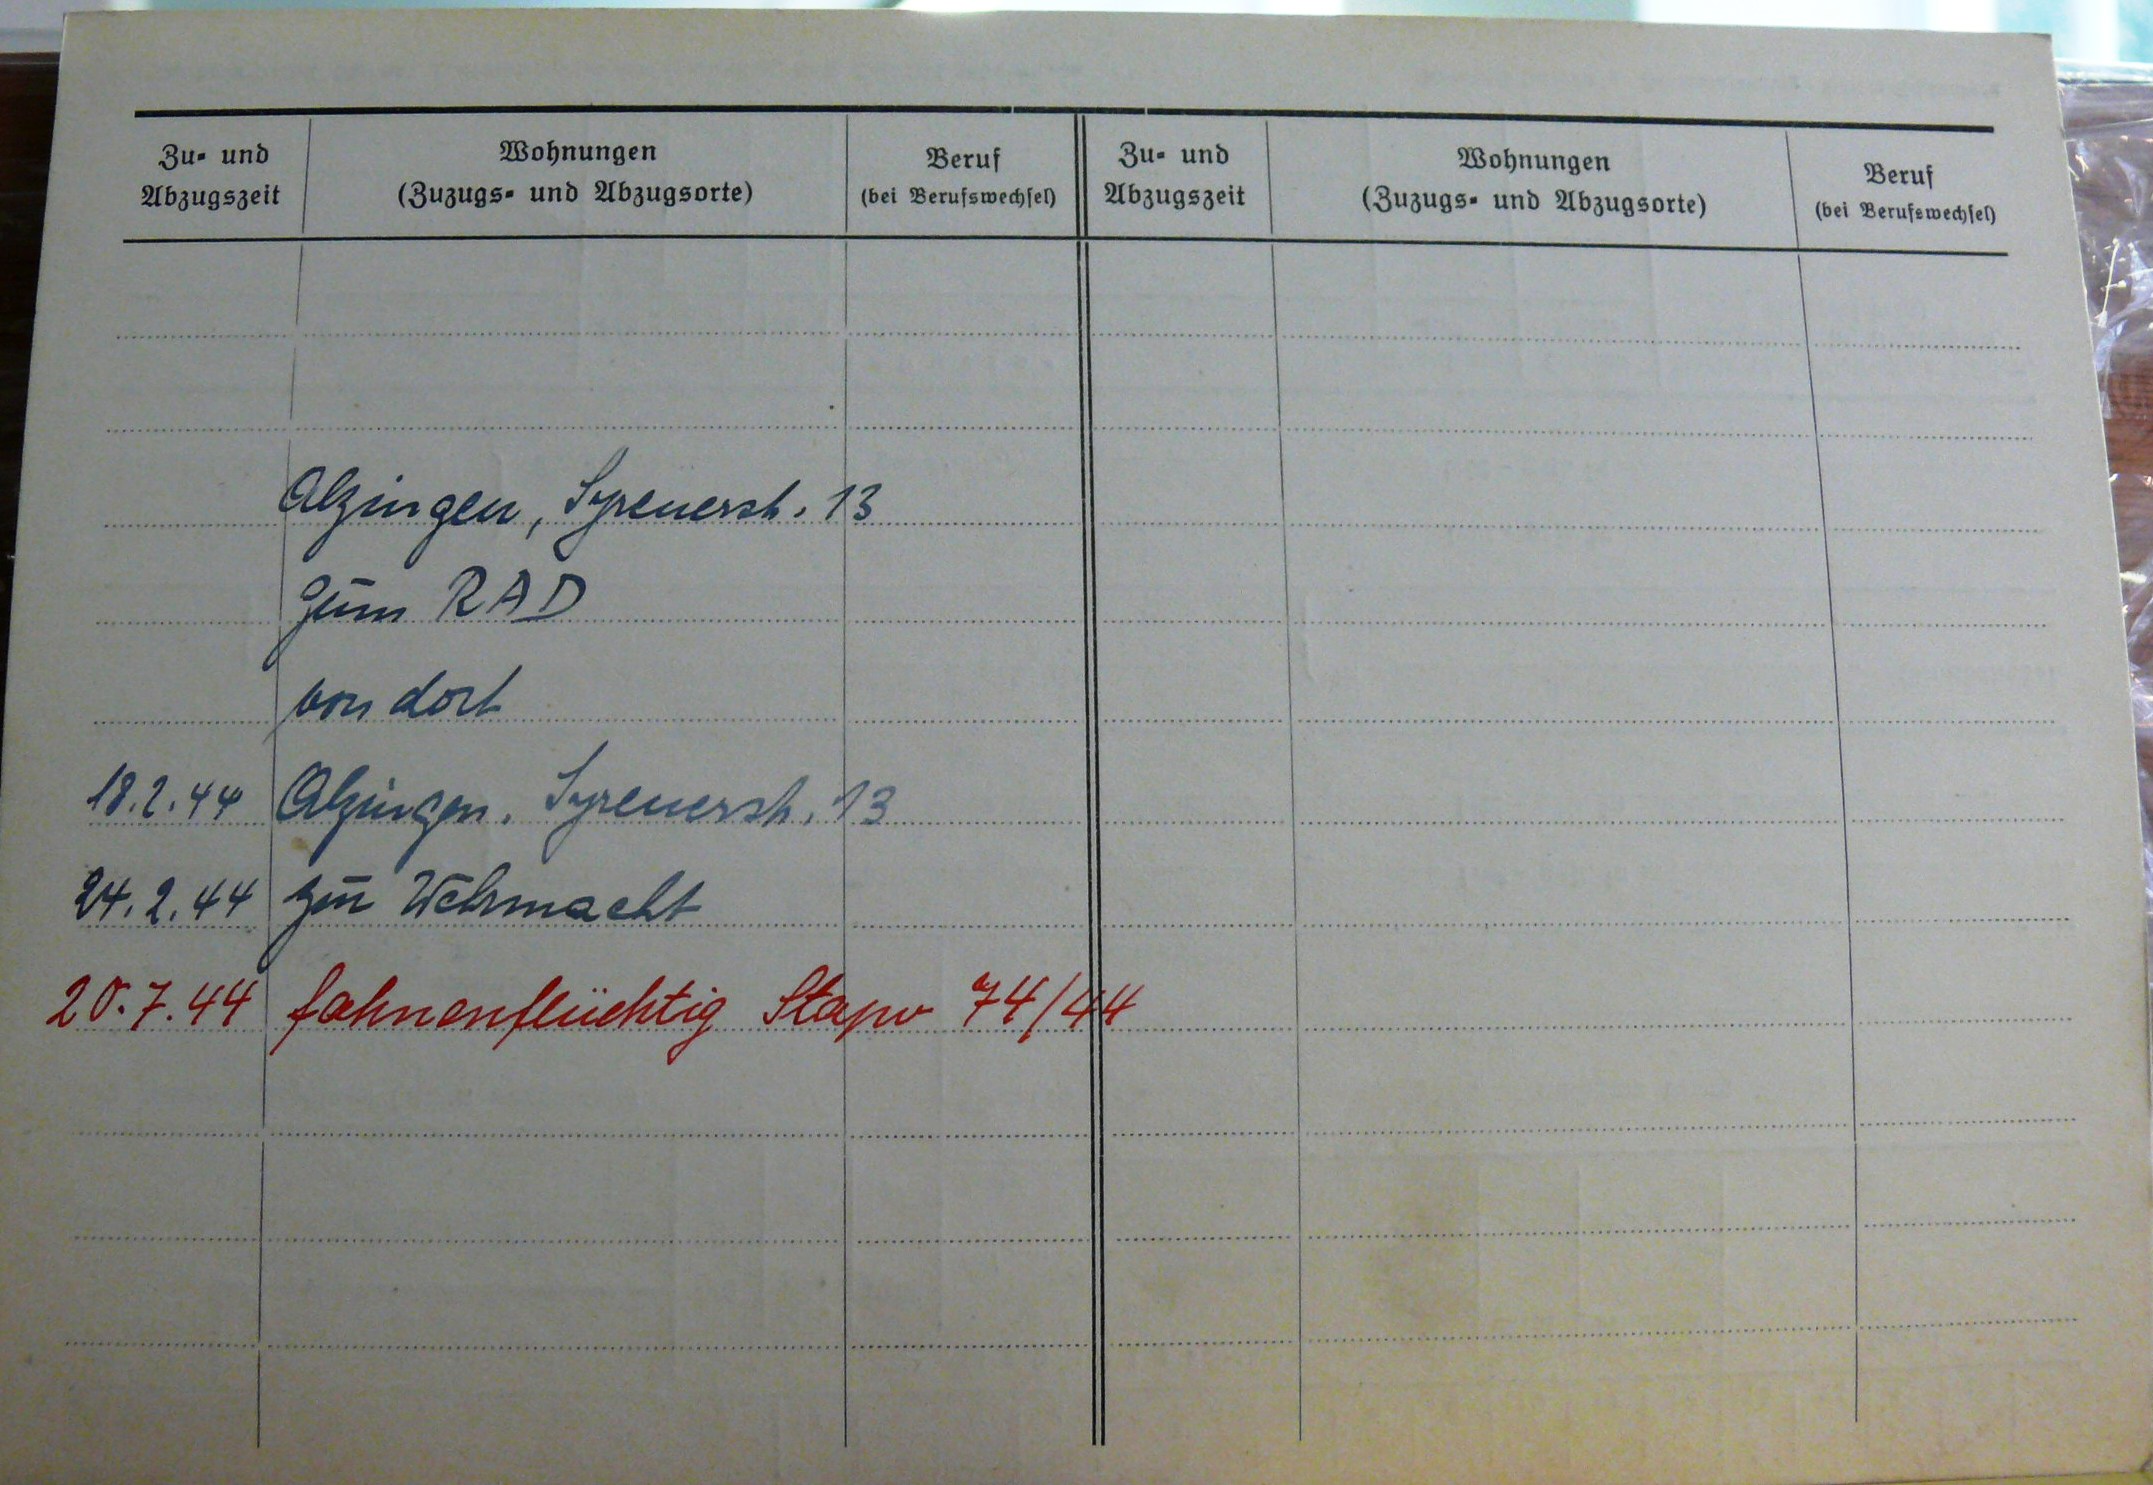 Zu- und Abzugszeit
Wohnungen
(Zuzugs- und Abzugsorte)
Beruf
(bei Berufswechsel)
Zu- und Abzugszeit
Wohnungen
(Zuzugs- und Abzugsorte)
Beruf
(bei Berufswechsel)
Alzingen, Syrenerstr. 13
zum RAD
von dort
18.2.44 Alzingen. Syrenerstr. 13
24.2.44 zur Wehrmacht
20.7.44 fahnenflüchtig Stapo 74/44